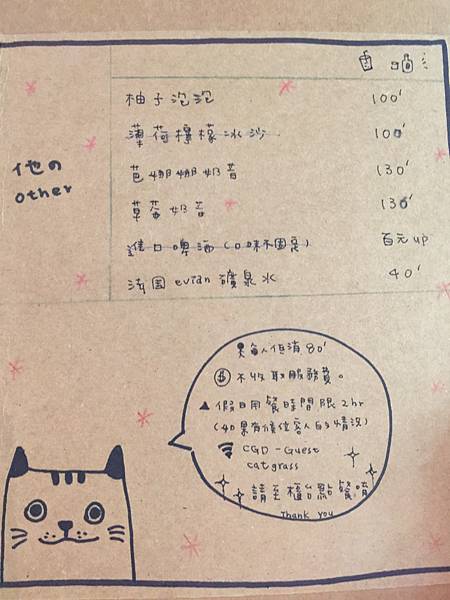 他の
other
柚子泡泡 100'
薄荷檸檬冰沙 100'
芭娜娜奶昔 130'
草莓奶昔 130'
進口啤酒(口味不固定) 百元up
法国 evian 礦泉水 40'
每人低消80'
$ 不收取服務費。
▲ 假日用餐時間限2hr
(如果有候位客人的情況)
CGD-Guest
catgrass
請至櫃台點餐唷
Thank you